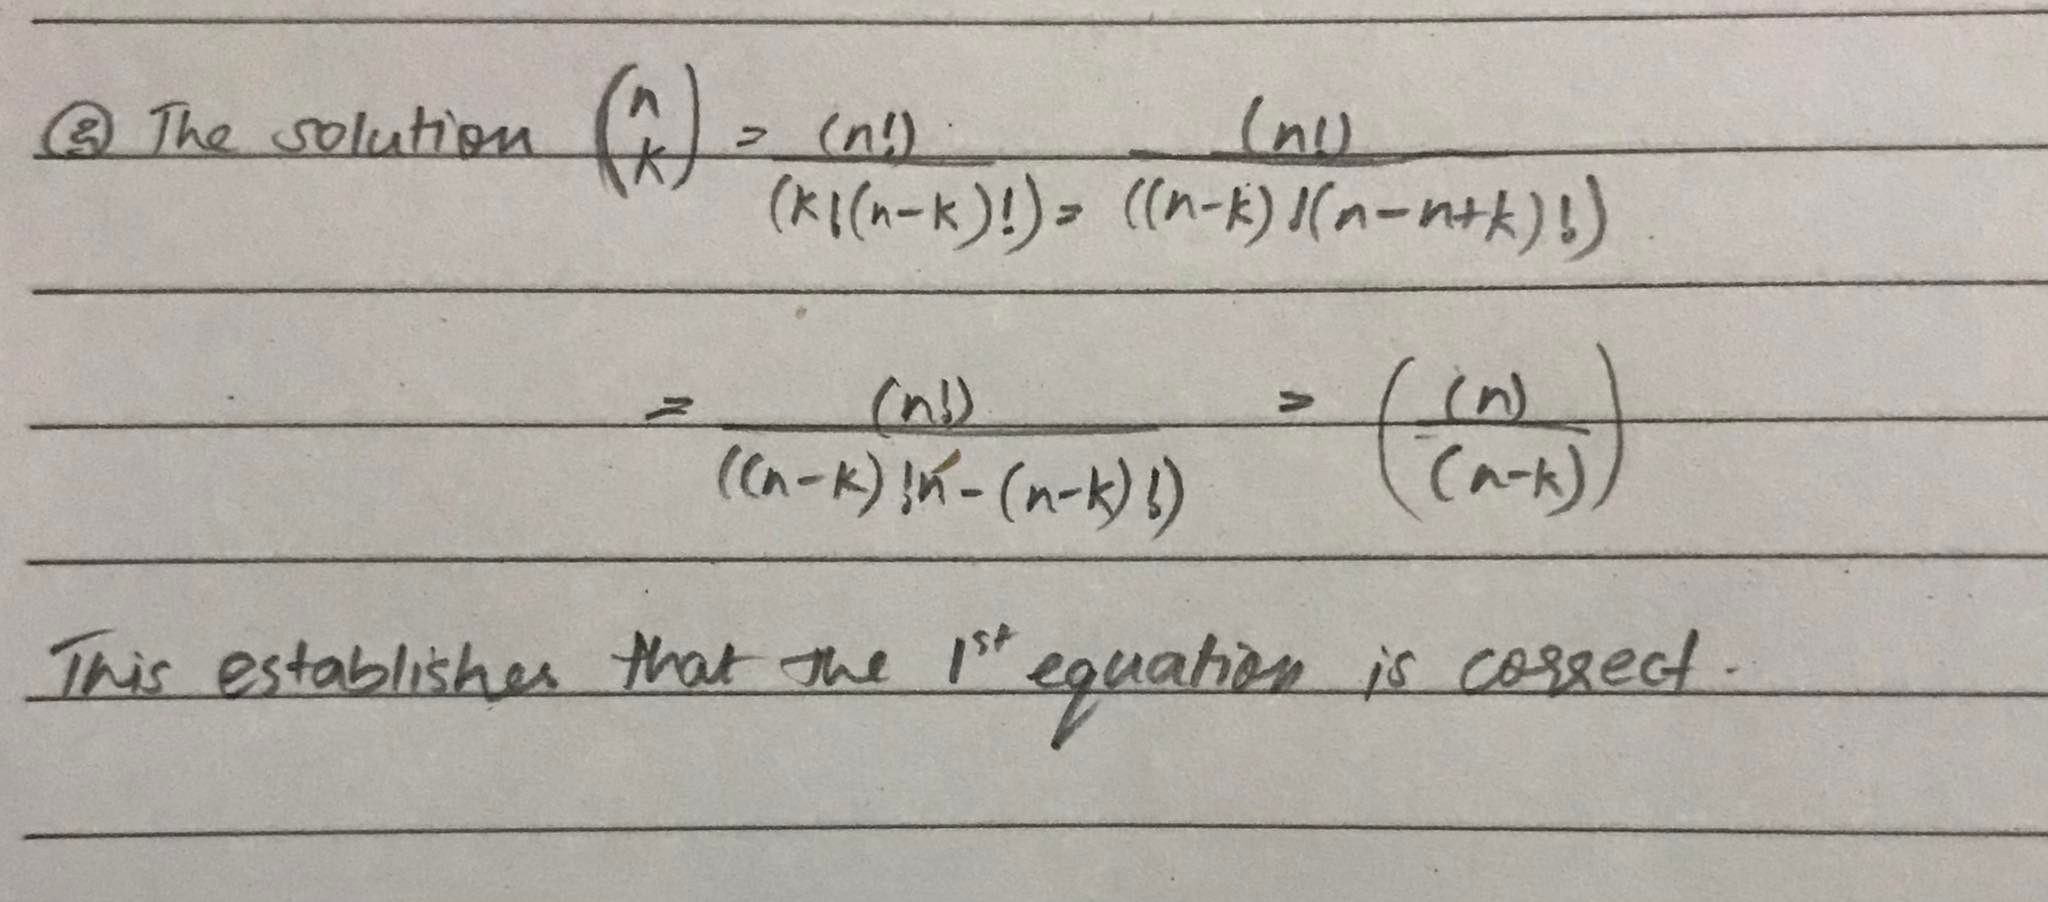 ③ The solution (n k) = (n!)/(k!(n-k)!) = (n!)/((n-k)!(n-n+k)!)
= (n!)/((n-k)!n-(n-k)!) = ((n)/(n-k))
This establishes that the 1st equation is correct.